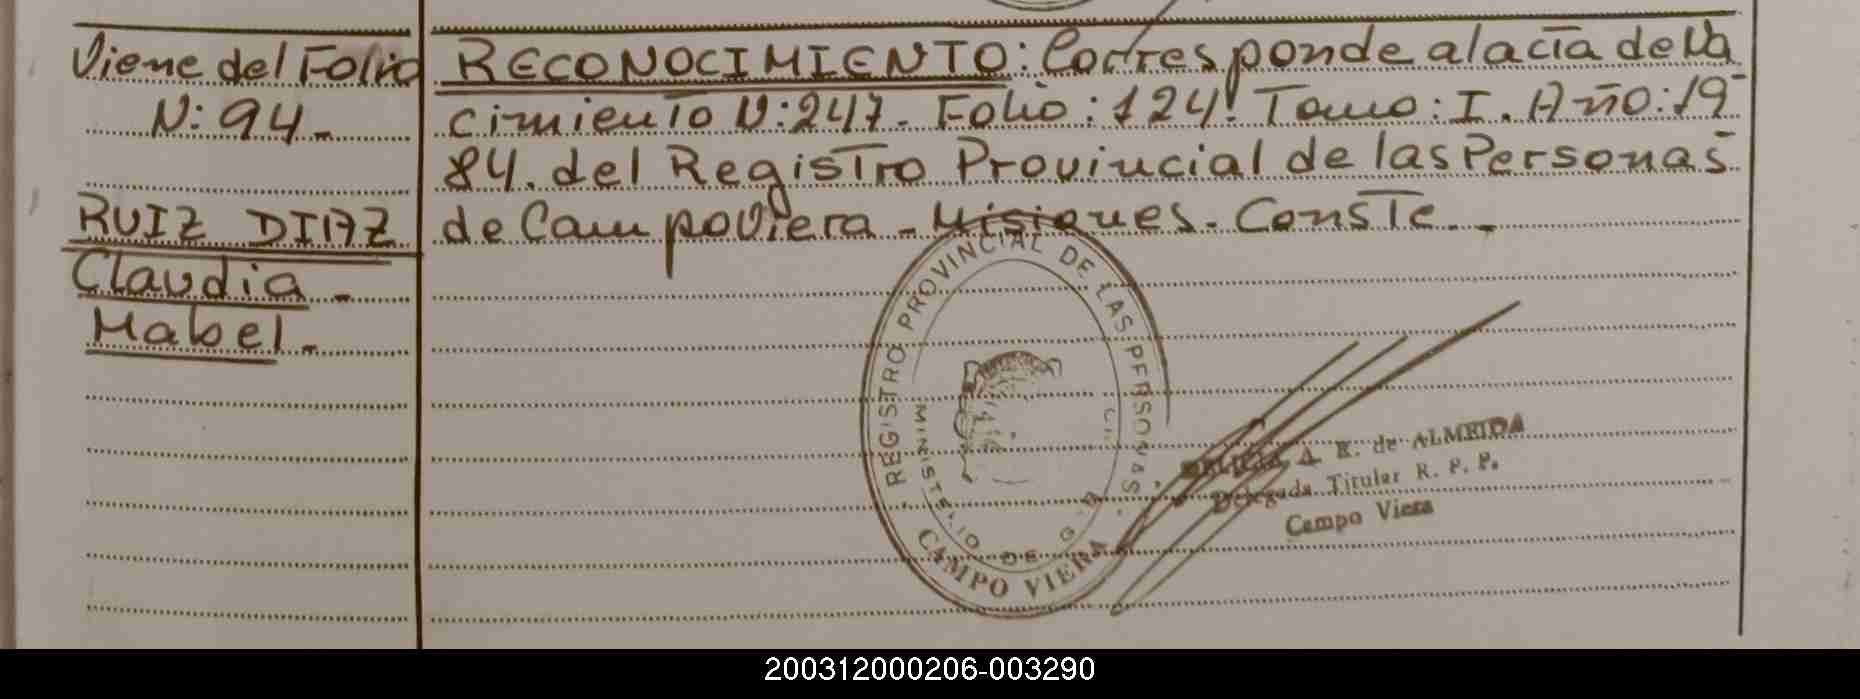 Viene del Folio
N: 94.-
RUIZ DIAZ
Claudia -
Mabel.-
RECONOCIMIENTO: Corresponde al acta de Na
cimiento N: 247. Folio: 124. Tomo: I. Año: 19-
84. del Registro Provincial de las Personas
de Campo Viera - Misiones. Conste.-
REGISTRO PROVINCIAL DE LAS PERSONAS
MINISTERIO DE G.
CAMPO VIERA
A. R. de ALMEIDA
Delegada Titular R. P. P.
Campo Viera
200312000206-003290